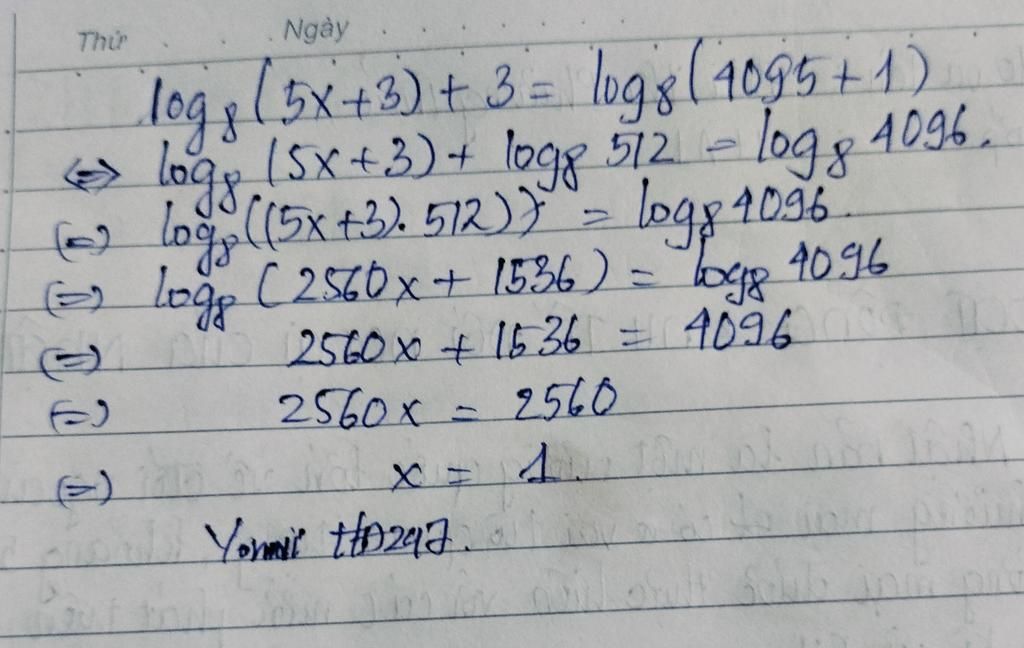 Thứ Ngày
log₈(5x+3)+3 = log₈(4095+1)
⇔ log₈(5x+3)+ log₈ 512 = log₈ 4096.
(=) log₈((5x+3).512)) = log₈ 4096.
(=) log₈(2560x+1536) = log₈ 4096
(=) 2560x + 1536 = 4096
(=) 2560x = 2560
(=) x = 1.